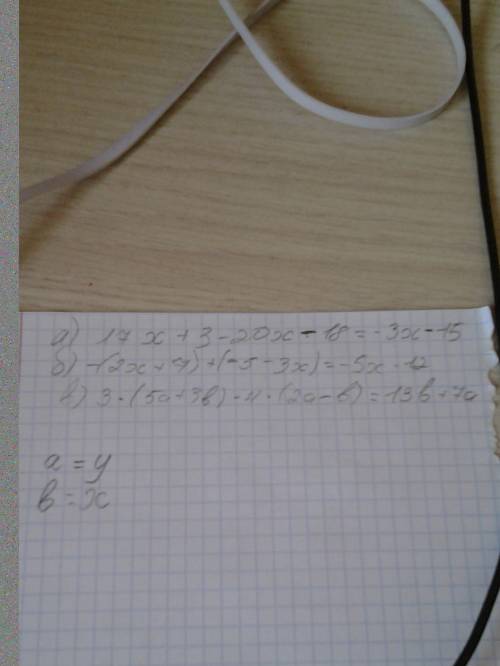 а) 17x + 3 - 20x - 18 = -3x - 15
б) -(2x + 7) + (-5 - 3x) = -5x - 12
в) 3 · (5a + 3b) - 4 · (2a - b) = 13b + 7a
a = y
b = x